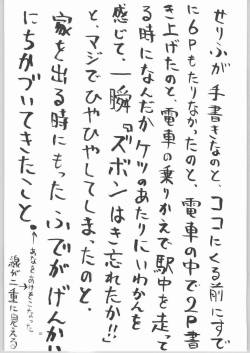 せりふが手書きなのと、ココにくる前にすで
に6Pもたりなかったのと、電車の中で2P書
き上げたのと、電車の乗りかえで駅中を走って
る時になんだかケツのあたりにいわかんを
感じて、一瞬『ズボンはき忘れたか!!』
と、マジでひやひやしてしまったのと.
家を出る時にもったふでがげんかい
にちかづいてきたこと。
↑あなをあけそこなった
線が二重に見える